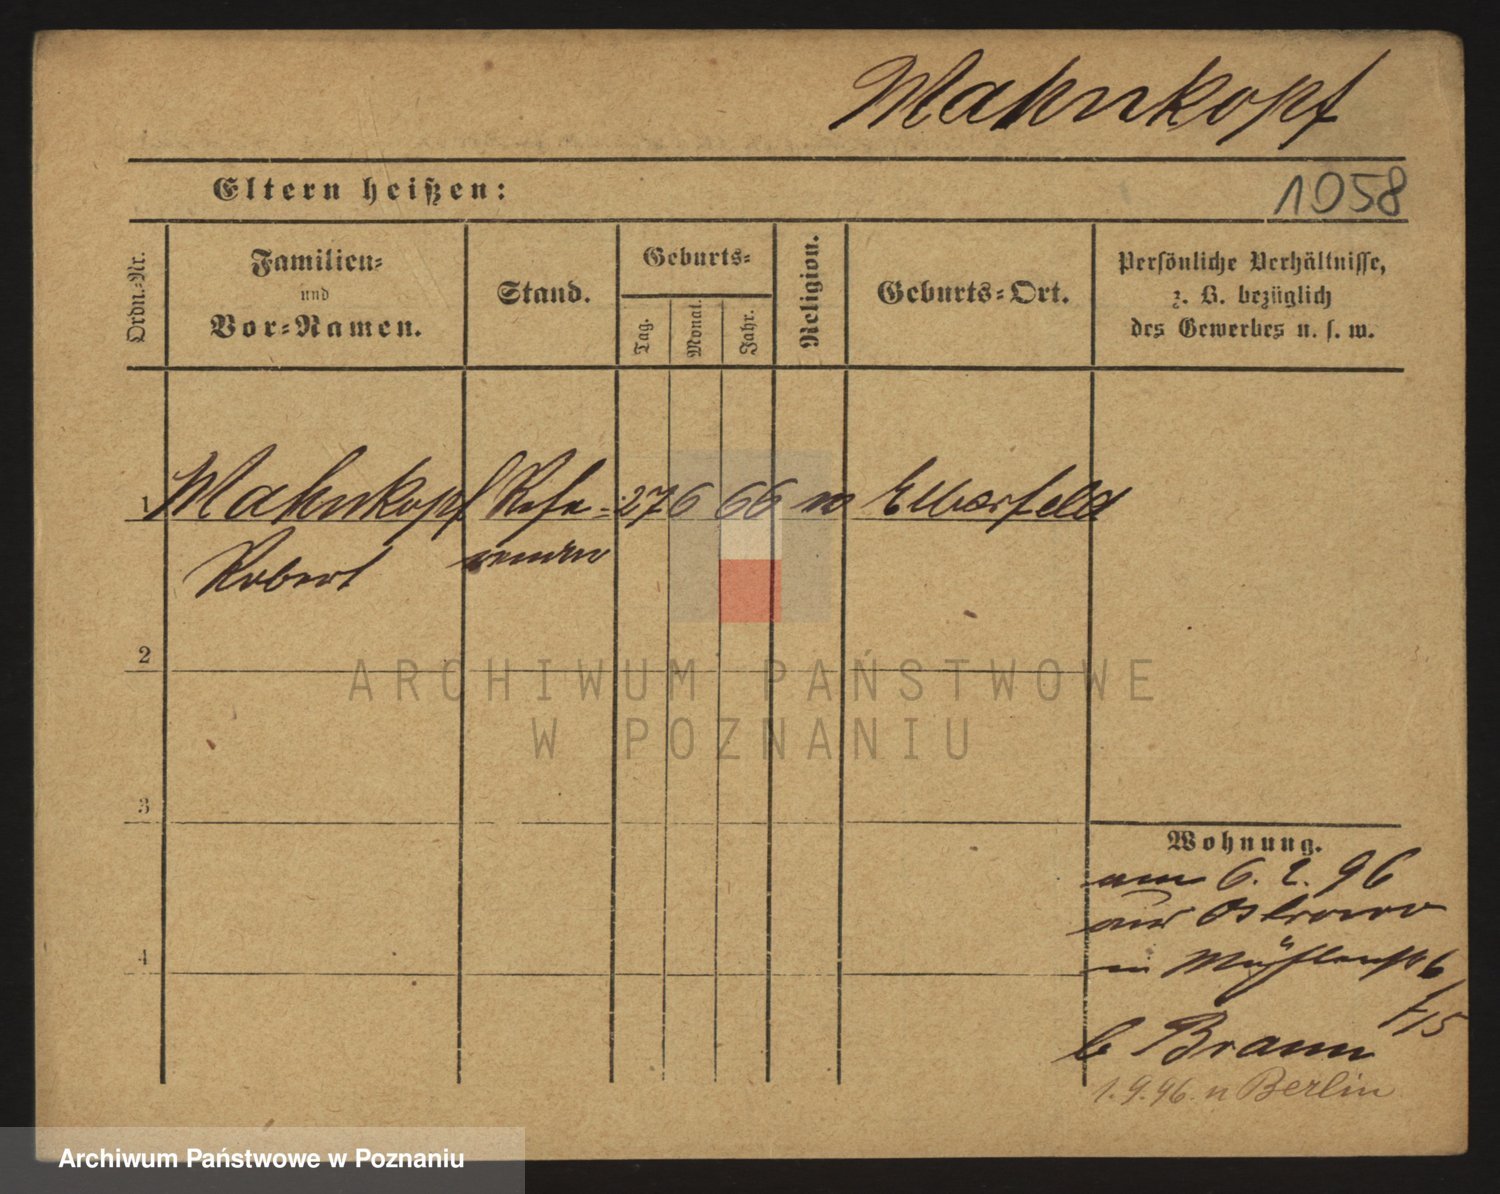 Mahnkopf
Eltern heißen:
1058
Ordn.-Nr.
Familien-
und
Vor-Namen.
Stand.
Geburts-
Tag.
Monat.
Jahr.
Religion.
Geburts-Ort.
Persönliche Verhältnisse,
z. B. bezüglich
des Gewerbes u. s. w.
1 Mahnkopf Refe- 27 6 66 Elberfeld
Robert rendar
2
ARCHIWUM PAŃSTWOWE
W POZNANIU
3
Wohnung.
am 6. 2. 96
aus Ostrowo
in Mühlenst 6
/15
b Braun
1.9.96. n Berlin
4
Archiwum Państwowe w Poznaniu